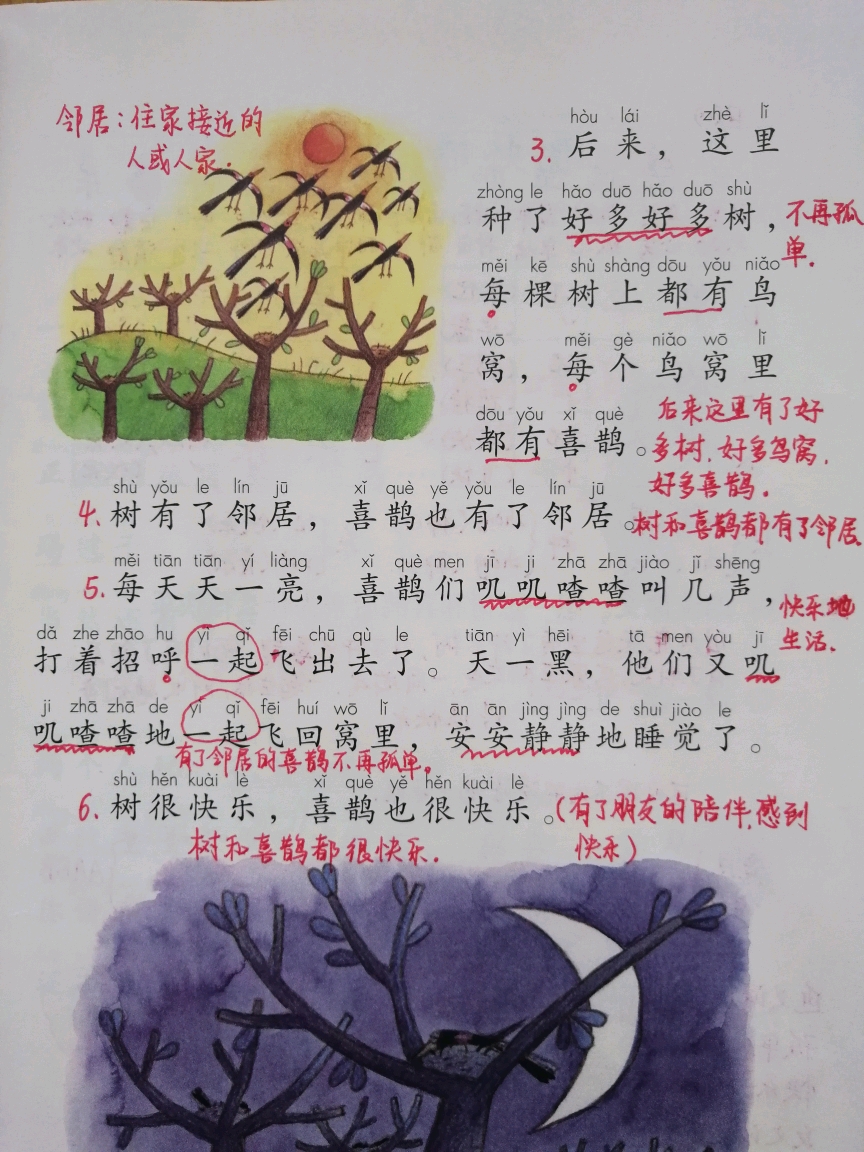 邻居：住家接近的
人或人家.
hòu lái zhè lǐ
3. 后来，这里
zhòng le hǎo duō hǎo duō shù
种了好多好多树，
不再孤
单.
měi kē shù shàng dōu yǒu niǎo
每棵树上都有鸟
wō měi gè niǎo wō lǐ
窝，每个鸟窝里
dōu yǒu xǐ què
都有喜鹊。
后来这里有了好
多树，好多鸟窝，
好多喜鹊。
shù yǒu le lín jū xǐ què yě yǒu le lín jū
4. 树有了邻居，喜鹊也有了邻居。
树和喜鹊都有了邻居
měi tiān tiān yí liàng xǐ què men jī ji zhā zhā jiào jǐ shēng
5. 每天天一亮，喜鹊们叽叽喳喳叫几声，
快乐地
生活.
dǎ zhe zhāo hu yì qǐ fēi chū qù le tiān yì hēi tā men yòu jī
打着招呼一起飞出去了。天一黑，他们又叽
ji zhā zhā de yì qǐ fēi huí wō lǐ ān ān jìng jìng de shuì jiào le
叽喳喳地一起飞回窝里，安安静静地睡觉了。
有了邻居的喜鹊不再孤单。
shù hěn kuài lè xǐ què yě hěn kuài lè
6. 树很快乐，喜鹊也很快乐。
(有了朋友的陪伴，感到
快乐)
树和喜鹊都很快乐.